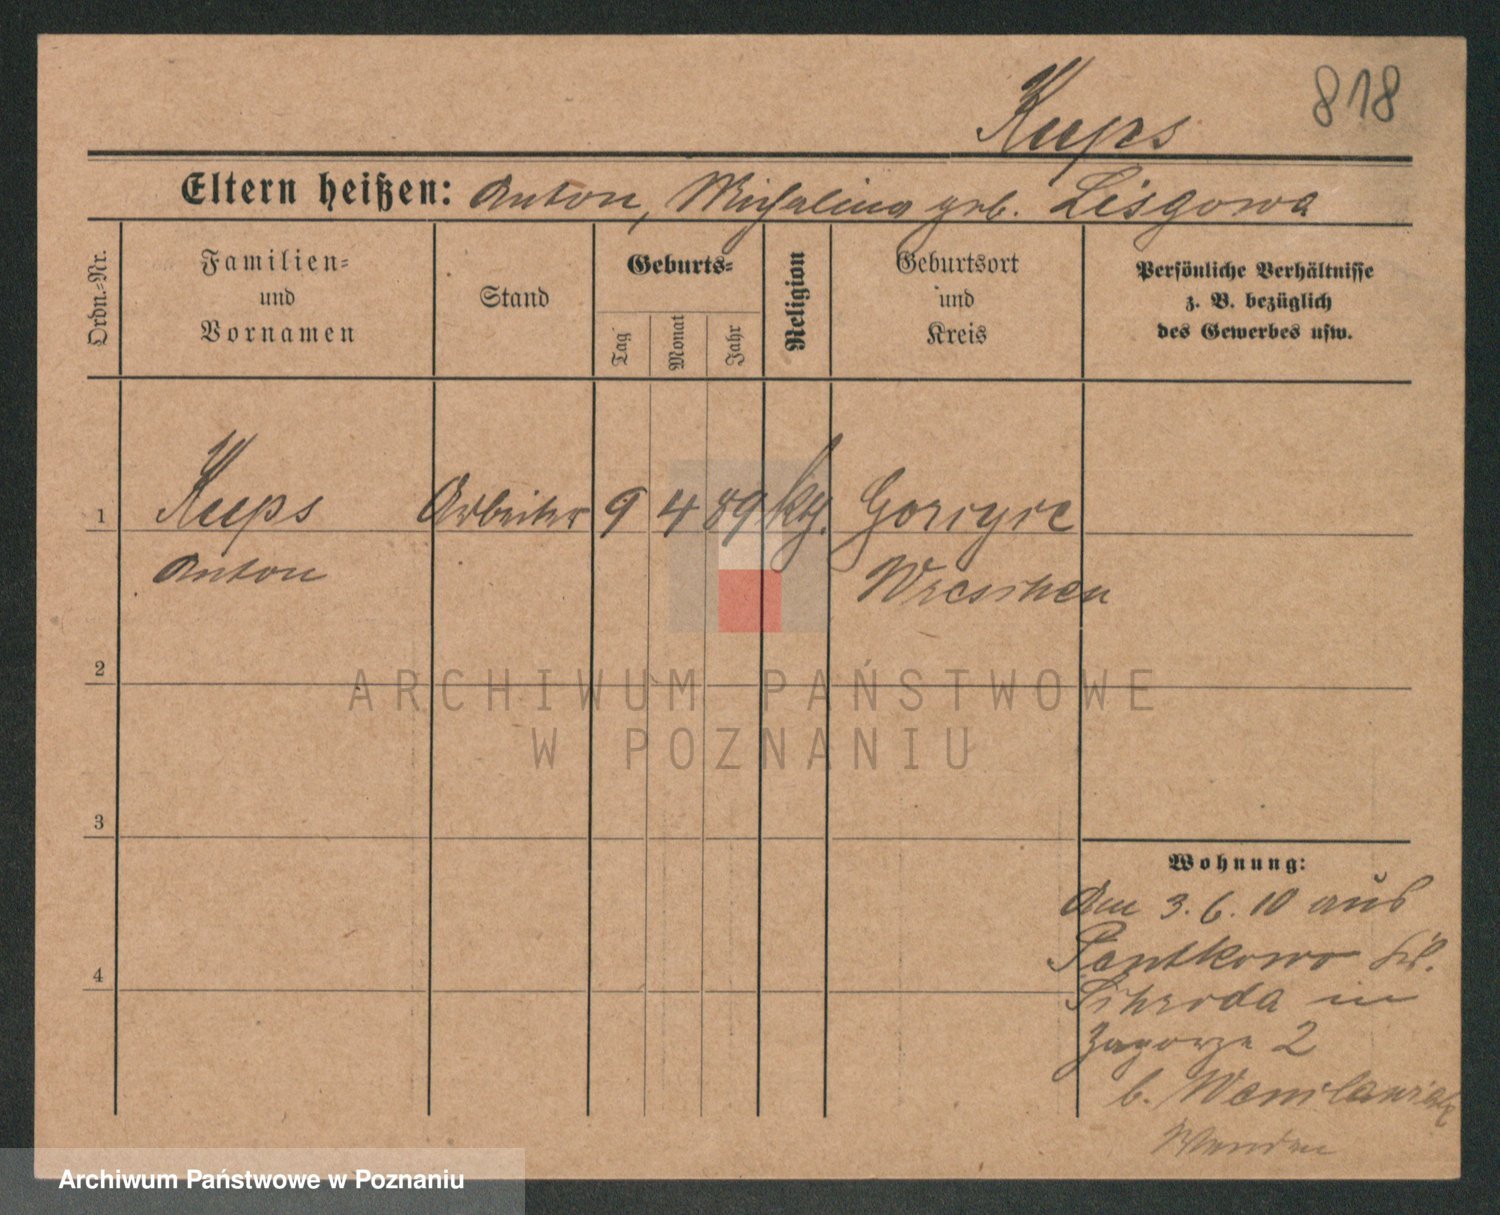 818
Kups
Eltern heißen: Anton, Michalina geb. Lisgowa
Ordn.-Nr.
Familien-
und
Vornamen
Stand
Geburts-
Tag
Monat
Jahr
Religion
Geburtsort
und
Kreis
Persönliche Verhältnisse
z. B. bezüglich
des Gewerbes usw.
1
Kups
Anton
Arbeiter
9
4
89
kth.
Wreschen
2
3
4
Wohnung:
Am 3. 6. 10 aus
Pentkowo Kr.
Schroda in
Zagorze 2
b.
ARCHIWUM PAŃSTWOWE
W POZNANIU
Archiwum Państwowe w Poznaniu